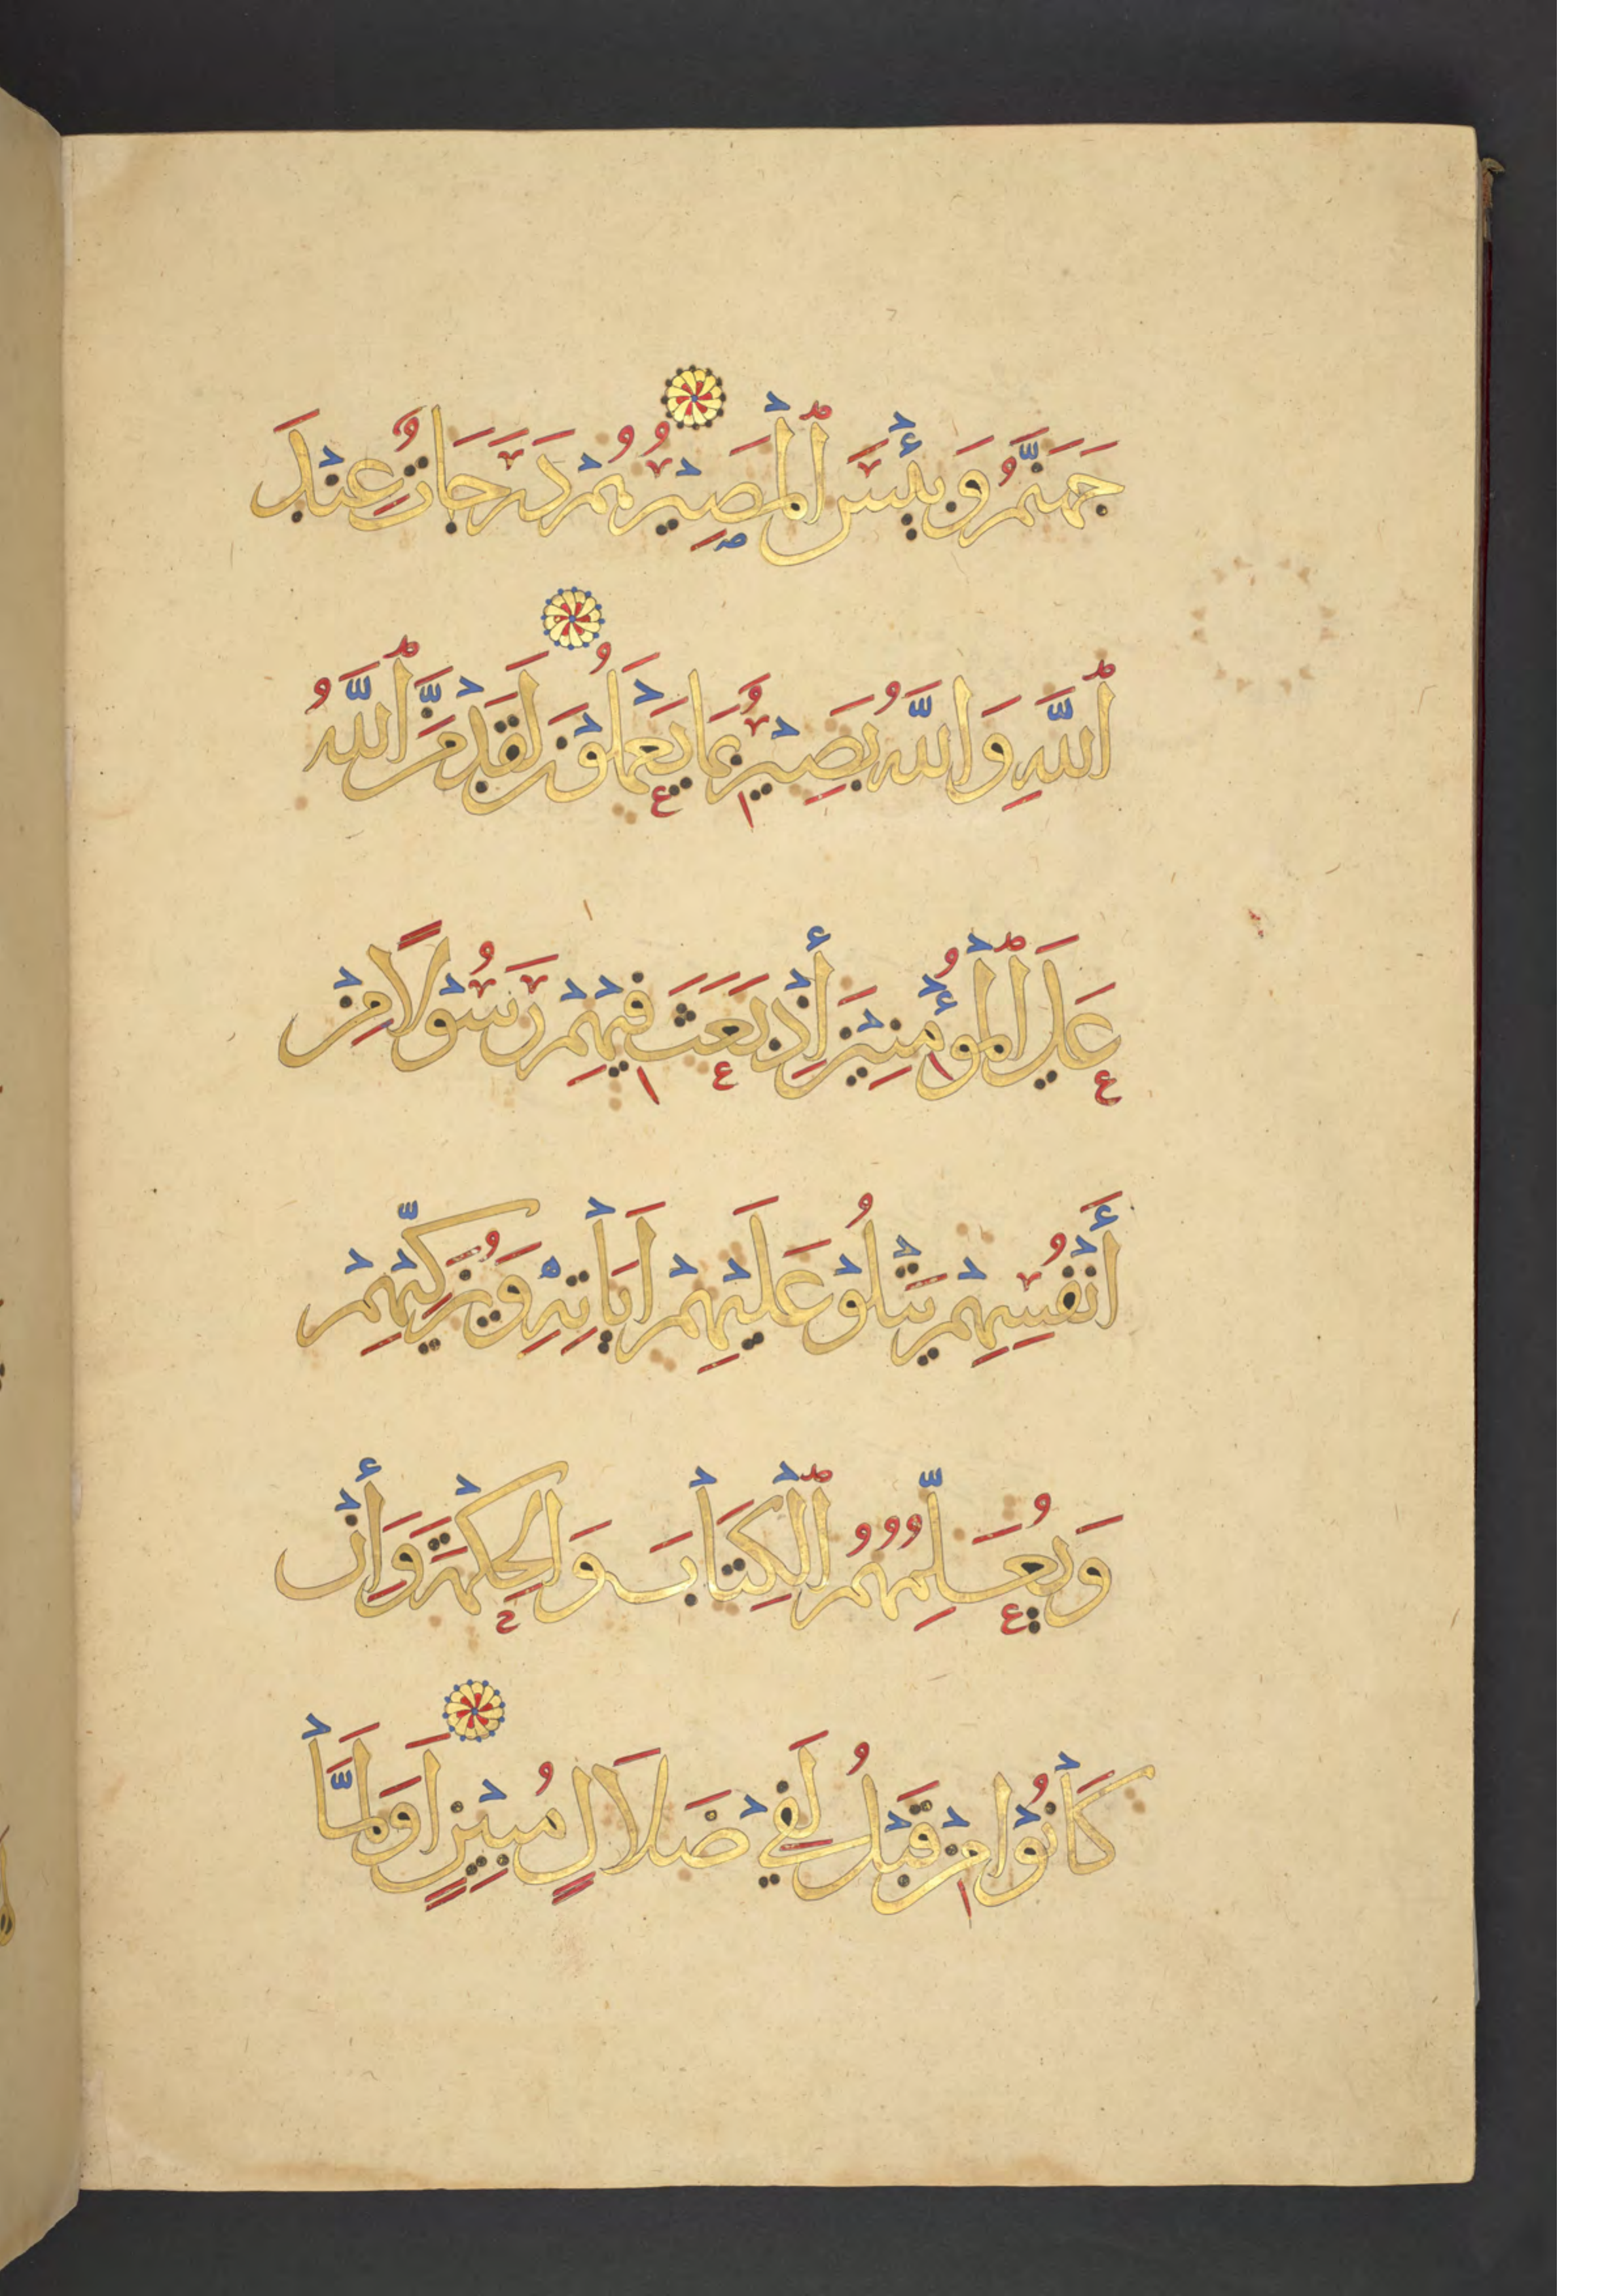 جَهَنَّمُ وَبِئْسَ ٱلْمَصِيْرُ هُمْ دَرَجَاتٌ عِنْدَ
ٱللَّهِ وَاللَّهُ بَصِيْرٌ بِمَا يَعْمَلُوْنَ لَقَدْ مَنَّ ٱللَّهُ
عَلَى ٱلْمُؤْمِنِيْنَ إِذْ بَعَثَ فِيْهِمْ رَسُوْلًا مِنْ
أَنْفُسِهِمْ يَتْلُوْ عَلَيْهِمْ اَيَاتِهِ وَيُزَكِّيْهِمْ
وَيُعَلِّمُهُمُ ٱلْكِتَابَ وَالْحِكْمَةَ وَإِنْ
كَانُوْا مِنْ قَبْلُ لَفِيْ ضَلَالٍ مُبِيْنٍ اَوَلَمَّا